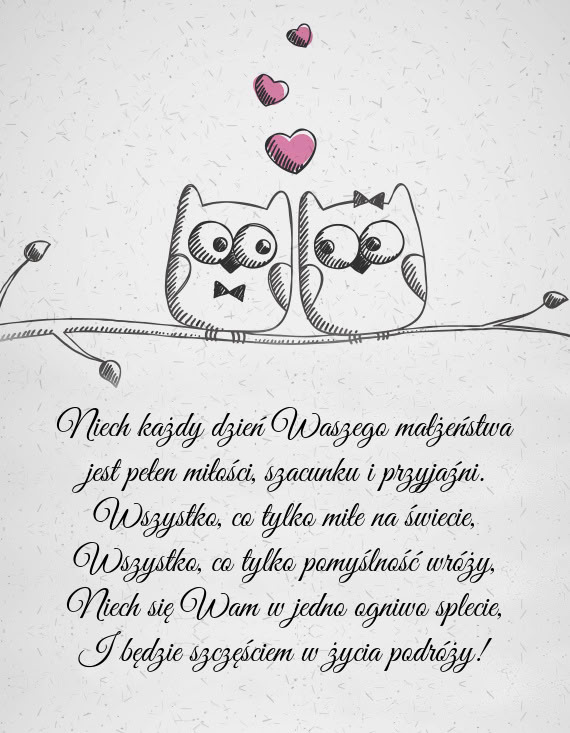 Niech każdy dzień Waszego małżeństwa
jest pełen miłości, szacunku i przyjaźni.
Wszystko, co tylko miłe na świecie,
Wszystko, co tylko pomyślność wróży,
Niech się Wam w jedno ogniwo splecie,
I będzie szczęściem w życia podróży!